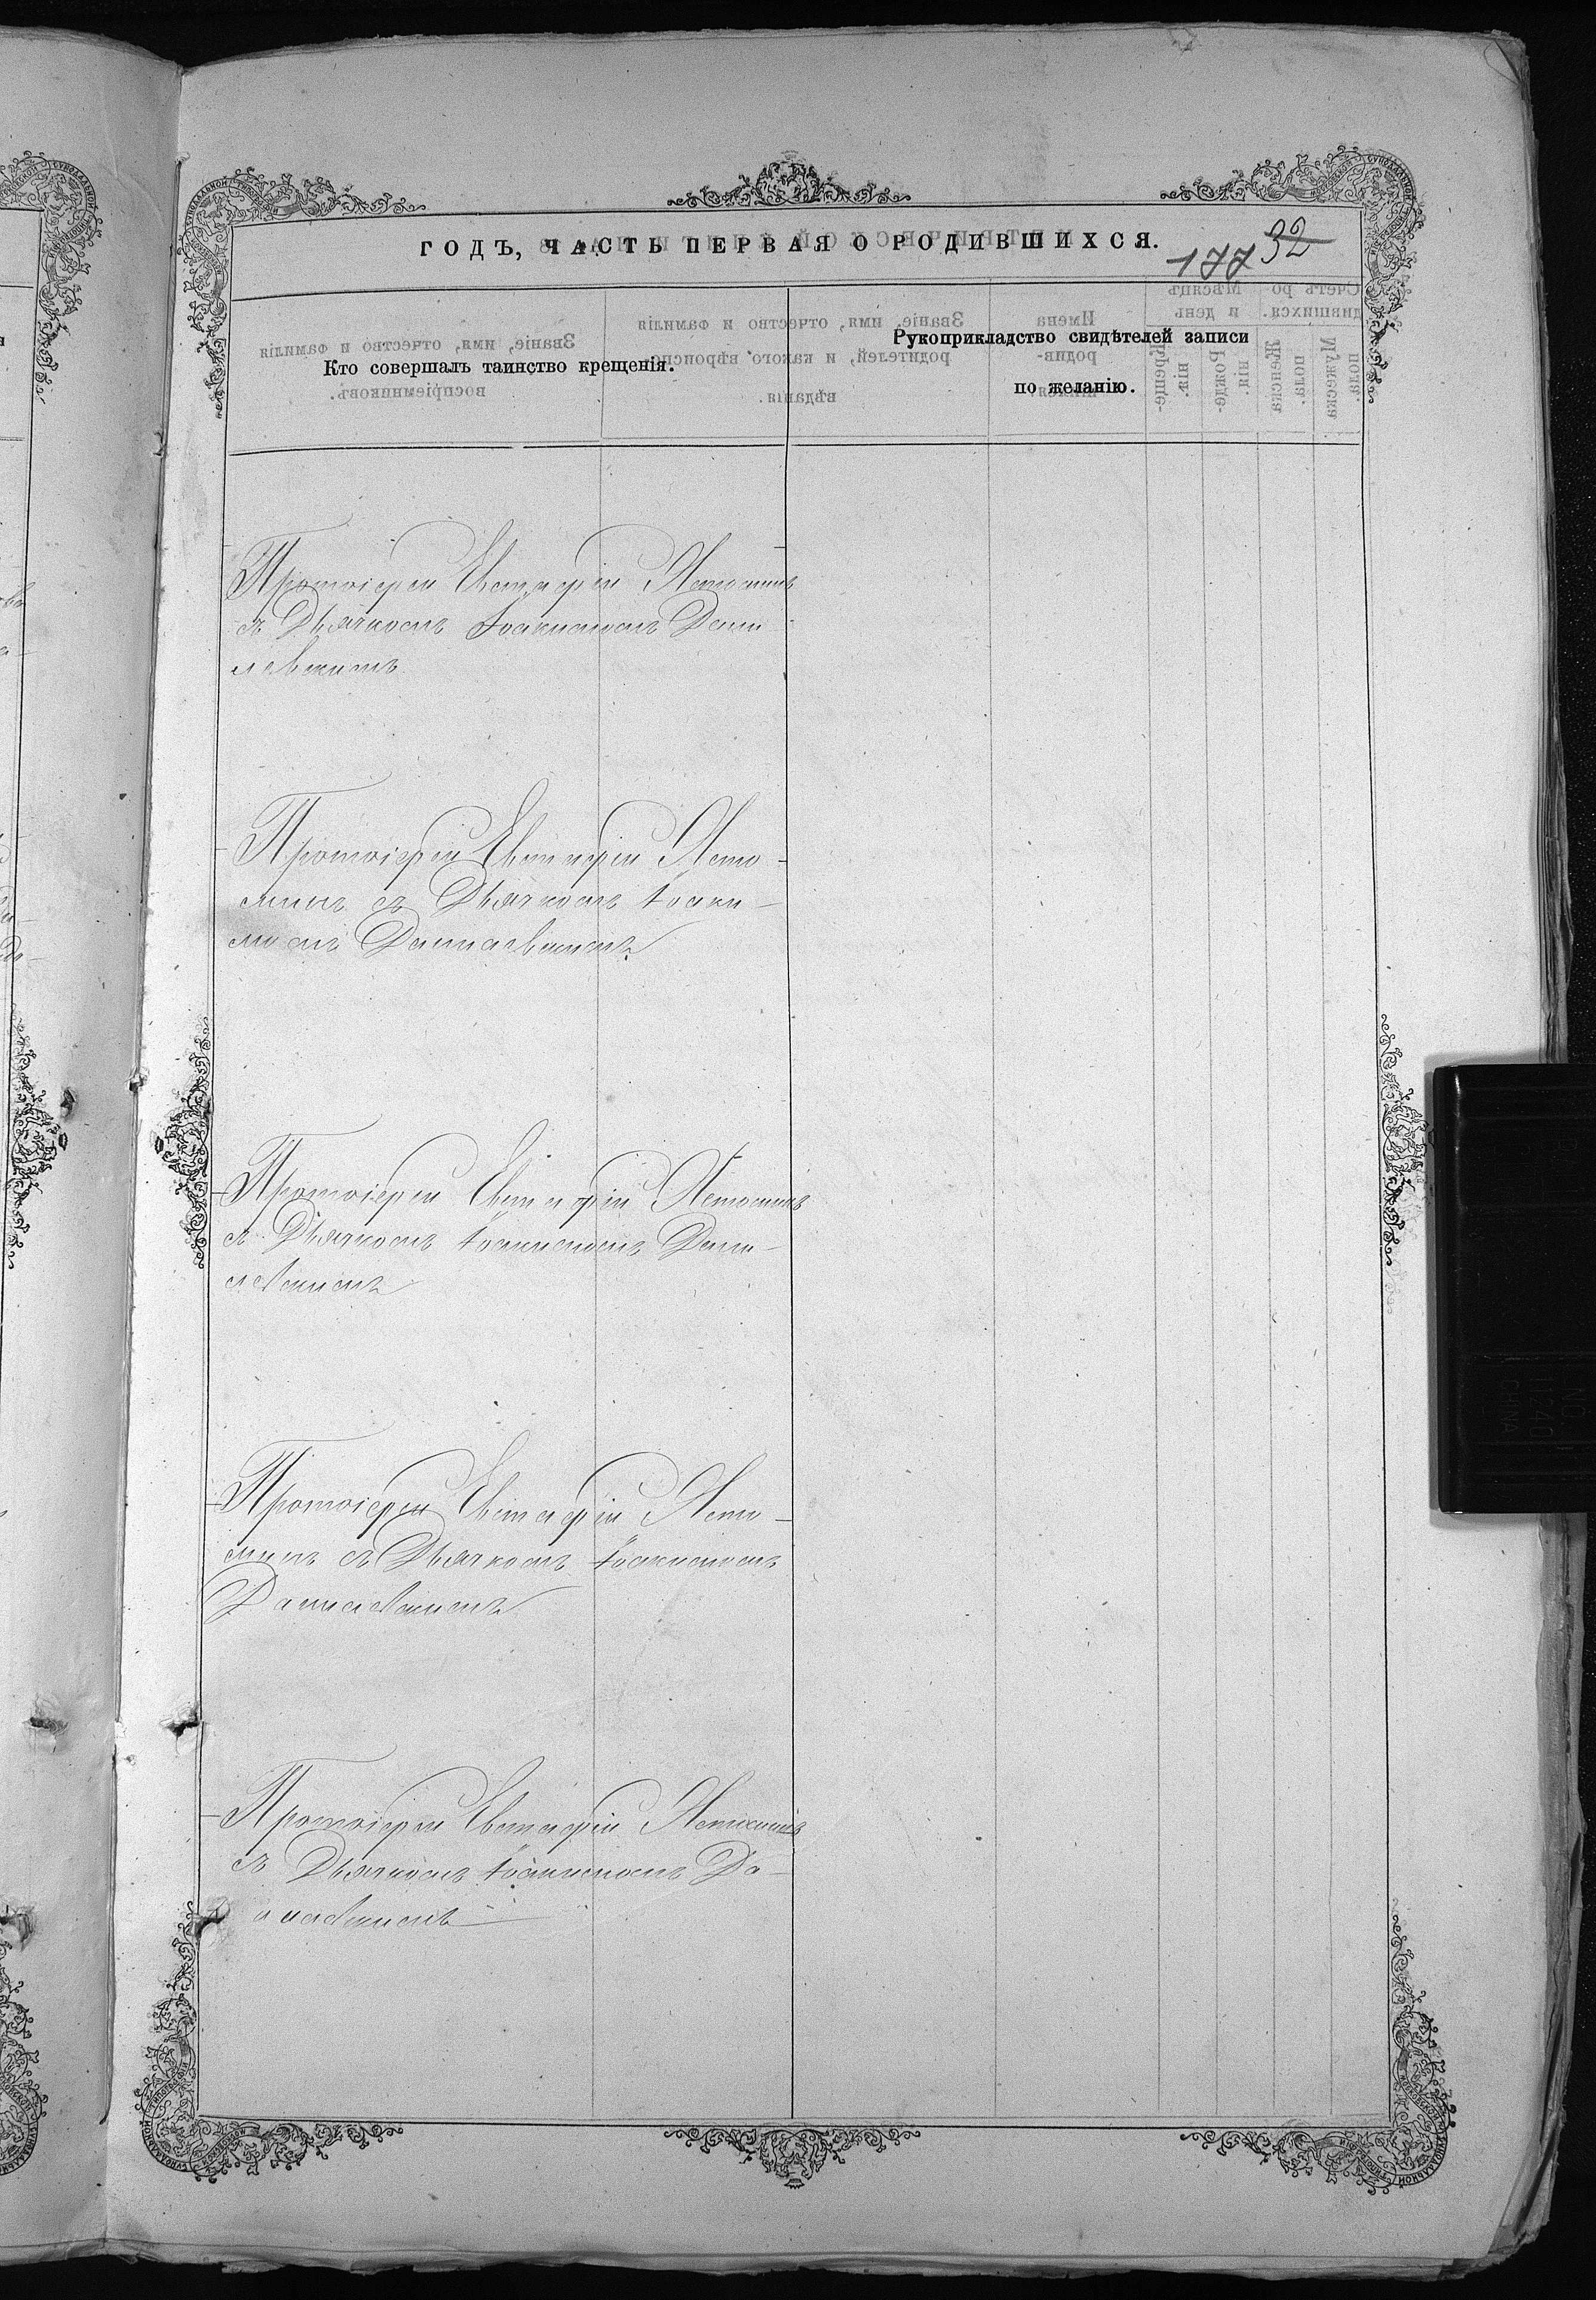 ГОДЪ, ЧАСТЬ ПЕРВАЯ О РОДИВШИХСЯ.
177 32
Кто совершалъ таинство крещенія.
Рукоприкладство свидѣтелей записи
по желанію.
Протоіерей Евстафій
съ Дьячкомъ Іоакимомъ Дани-
левскимъ
Протоіерей Евстафій
съ Дьячкомъ Іоаки-
момъ Данилевскимъ
Протоіерей Евстафій
съ Дьячкомъ Іоакимомъ Дани-
левскимъ
Протоіерей Евстафій
съ Дьячкомъ Іоакимомъ
Данилевскимъ
Протоіерей Евстафій
съ Дьячкомъ Іоакимомъ Да-
нилевскимъ